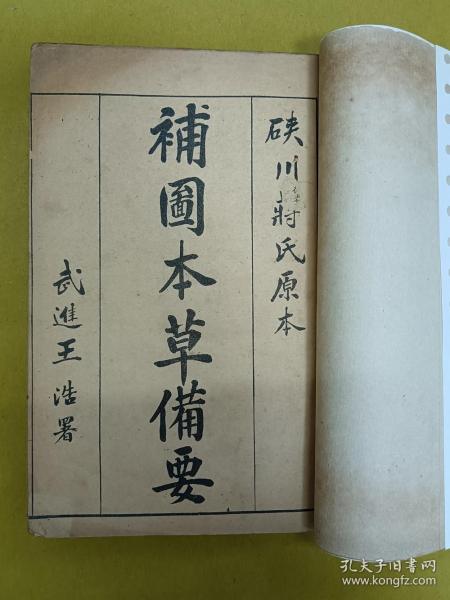 硤川蔣氏原本
補圖本草備要
武進王浩署
孔夫子旧书网
www.kongfz.com